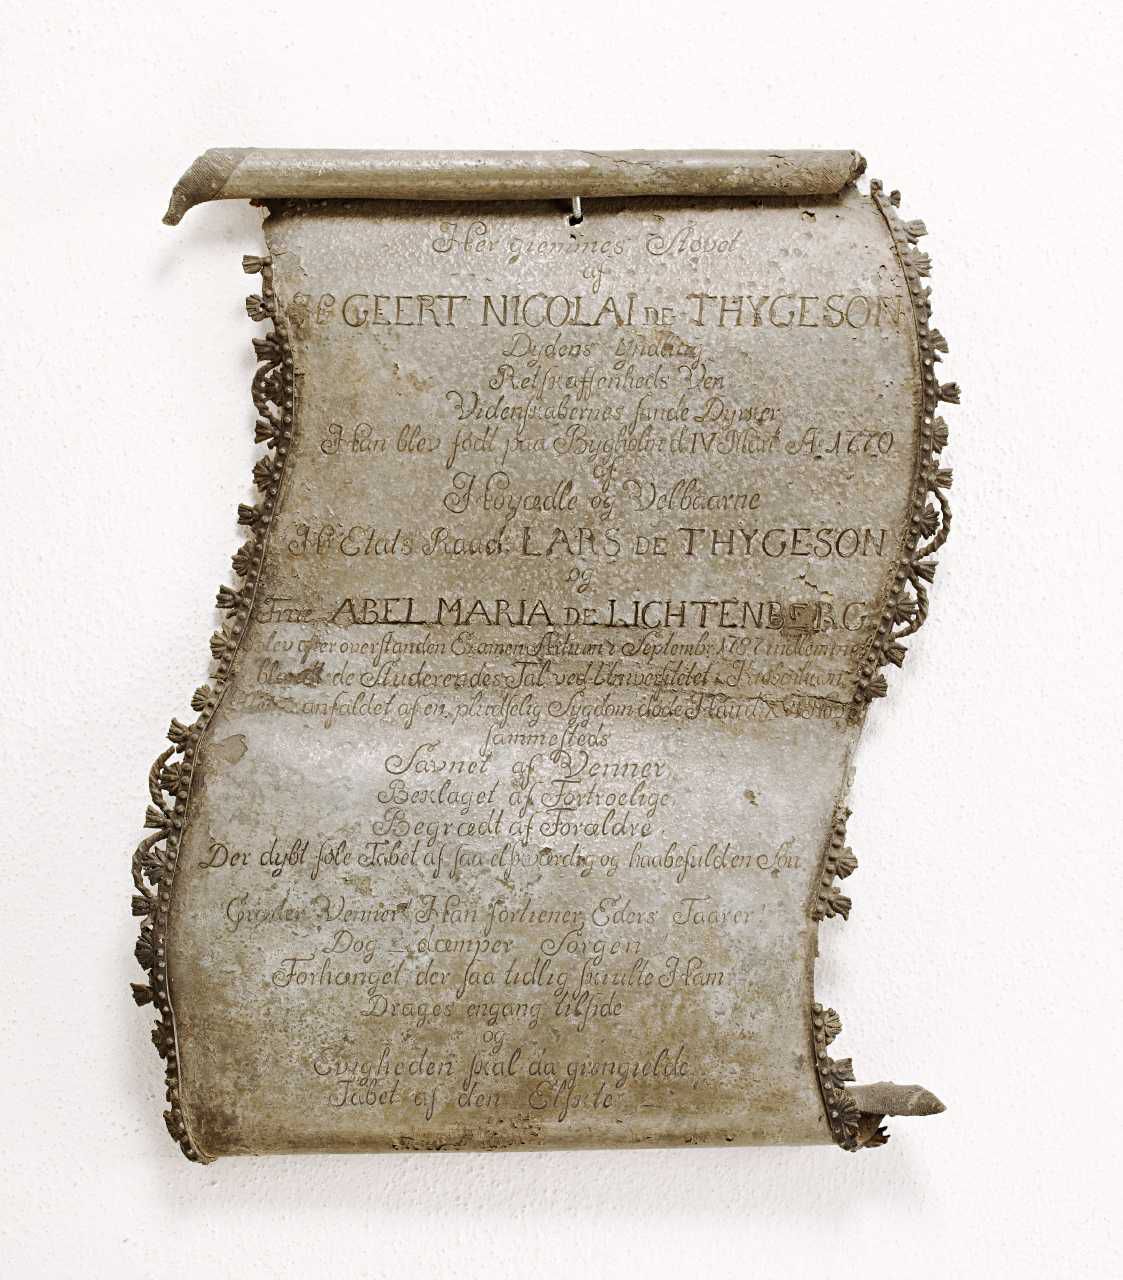 Her giemmes Støvet
af
Hr GEERT NICOLAI DE THYGESON
Dydens Yndling
Retskaffenheds Ven
Videnskabernes sande Dyrker
Han blev født paa Bygholm d IV Mart. Ao 1770
af
Høyædle og Velbaarne
Hr Etats Raad LARS DE THYGESON
og
Frue ABEL MARIA DE LICHTENBERG
blev efter overstanden Examen Artium i Septembr. 1787 indlemmet
blandt de Studerendes Tal ved Universitetet i
anfaldet af en pludselig Sygdom døde Han d XVI
sammesteds
Savnet af Venner,
Beklaget af Fortroelige,
Begrædt af Forældre.
Der dybt føle Tabet af saa elskværdig og haabefuld en Søn
Venner Han fortiener Eders Taarer!
Dog dæmper Sorgen
Forhænget der saa tidlig skiulte Ham
Drages engang tilside
og
Evigheden skal da grengielde
Tabet af den Elskte